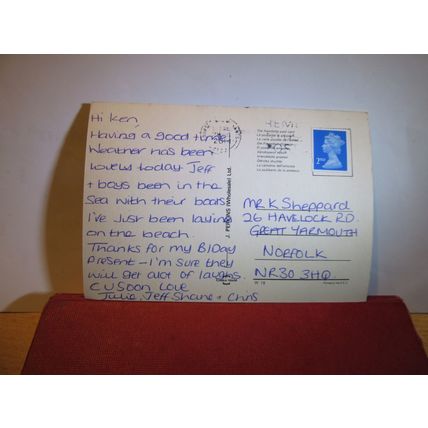 Hi Ken,
Having a good time
Weather has been
lovely today Jeff
+ boys been in the
Sea with their boats
I've Just been laying
on the beach.
Thanks for my B/Day
Present - I'm sure they
will get alot of laughs.
C U Soon Love
Julie, Jeff Shane + Chris
J. (Wholesale) Ltd.
2ND
MR K Sheppard
26 HAVELOCK RD
GREAT YARMOUTH
NORFOLK
NR30 3HQ